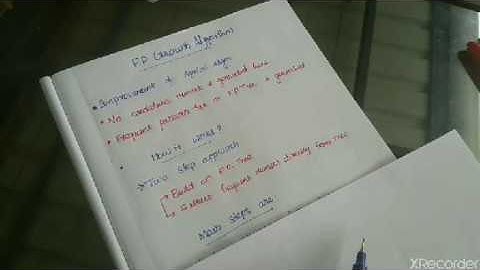 F.P Growth Algorithm
• Improvement to Apriori algm
• No candidates generated here
• Frequent pattern tree or F.P-Tree is generated
• How it works?
→ Two step approach
Build an F.P. Tree
Extract frequent itemsets directly from tree
Main steps are
XRecorder